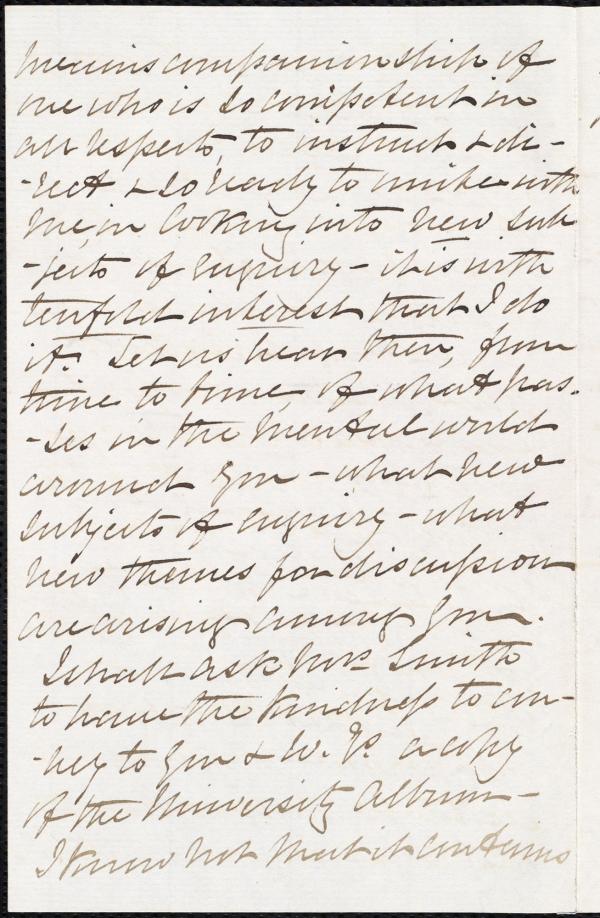 means companionship of
one who is so competent in
all respects, to instruct & di-
-rect & so ready to unite with
me, in looking into new sub
-jects of enquiry - it is with
tenfold interest that I do
it. Let us hear then, from
time to time, of what pas-
-ses in the mental world
around you - what new
subjects of enquiry - what
new themes for discussion
are arising among you.
I shall ask Mrs. Smith
to have the kindness to con-
-vey to you & W. Ps. a copy
of the University Album -
I know not that it contains